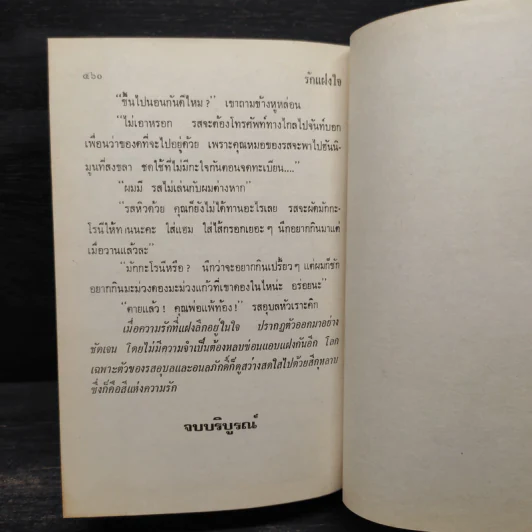 ๕๖๐ รักแฝงใจ
“ขึ้นไปนอนกันดีไหม?” เขาถามข้างหูหล่อน
“ไม่เอาหรอก รสจะต้องโทรศัพท์ทางไกลไปจันท์บอก
เพื่อนว่าของดที่จะไปอยู่ด้วย เพราะคุณหมอของรสจะพาไปฮันนี-
มูนที่สงขลา ชดใช้ที่ไม่มีกะใจกันตอนจดทะเบียน....”
“ผมมี รสไม่เล่นกับผมต่างหาก”
“รสหิวด้วย คุณก็ยังไม่ได้ทานอะไรเลย รสจะผัดมักกะ-
โรนีให้ทานนะคะ ใส่แฮม ใส่ไส้กรอกเยอะๆ นึกอยากกินมาแต่
เมื่อวานแล้วละ”
“มักกะโรนีหรือ? นึกว่าจะอยากกินเปรี้ยวๆ แต่ผมก็ชัก
อยากกินมะม่วงดองมะม่วงแก้วที่เขาดองในไหน่ะ อร่อยนะ”
“ตายแล้ว! คุณพ่อแพ้ท้อง!” รสอุบลหัวเราะคิก
เมื่อความรักที่แฝงลึกอยู่ในใจ ปรากฏตัวออกมาอย่าง
ชัดเจน โดยไม่มีความจำเป็นต้องหลบซ่อนแอบแฝงกันอีก โลก
เฉพาะตัวของรสอุบลและอนลภักดิ์ก็ดูสว่างสดใสไปด้วยสีกุหลาบ
ซึ่งก็คือสีแห่งความรัก
จบบริบูรณ์